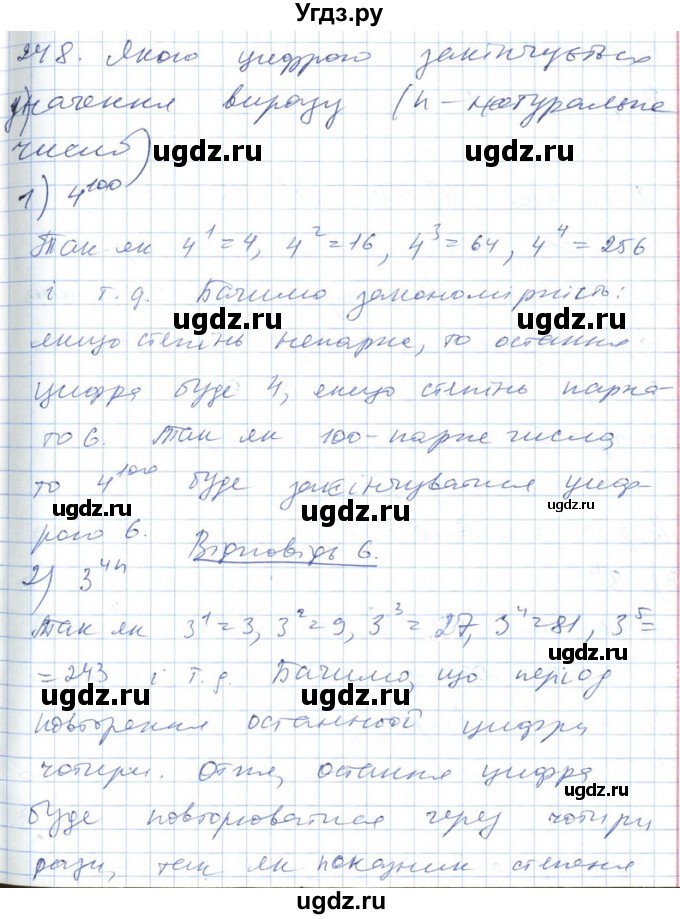 Угдз.ру
248. Якою цифрою закінчується
значення виразу (n - натуральне
число)
1) 4^100
Так як 4^1=4, 4^2=16, 4^3=64, 4^4=256
і т.д. Бачимо закономірність:
якщо степінь непарна, то остання
цифра буде 4, якщо степінь парна-
то 6. Так як 100-парне число,
то 4^100 буде закінчуватися циф-
рою 6. Відповідь 6.
2) 3^4n
Так як 3^1=3, 3^2=9, 3^3=27, 3^4=81, 3^5=
=243 і т.д. Бачимо, що період
повторення останньої цифри
чотири. Отже, остання цифра
буде повторюватися через чотири
рази, так як показник степеня
ugdz.ru ugdz.ru
ugdz.ru ugdz.ru
ugdz.ru ugdz.ru
ugdz.ru ugdz.ru
ugdz.ru ugdz.ru
ugdz.ru ugdz.ru
ugdz.ru ugdz.ru